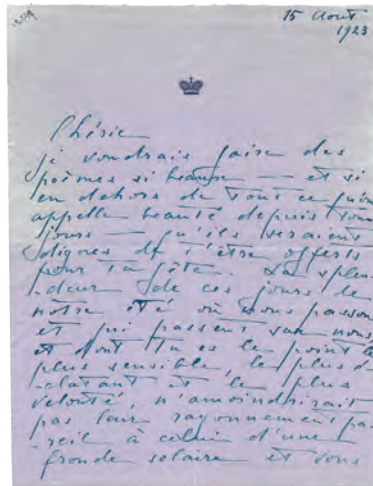 15 Août
1923
Chérie
je voudrais faire des
poèmes si beaux — et si
en dehors de tout ce qu'on
appelle beauté depuis tou
jours — qu'ils seraient
dignes de t'être offerts
pour ta fête. La splen
-deur de ces jours de
notre été où nous passons
et qui passent sur nous,
et dont tu es le point le
plus sensible, le plus é-
-clatant et le plus
velouté, n'amoindrirait
pas leur rayonnement pa-
-reil à celui d'une
fronde solaire et